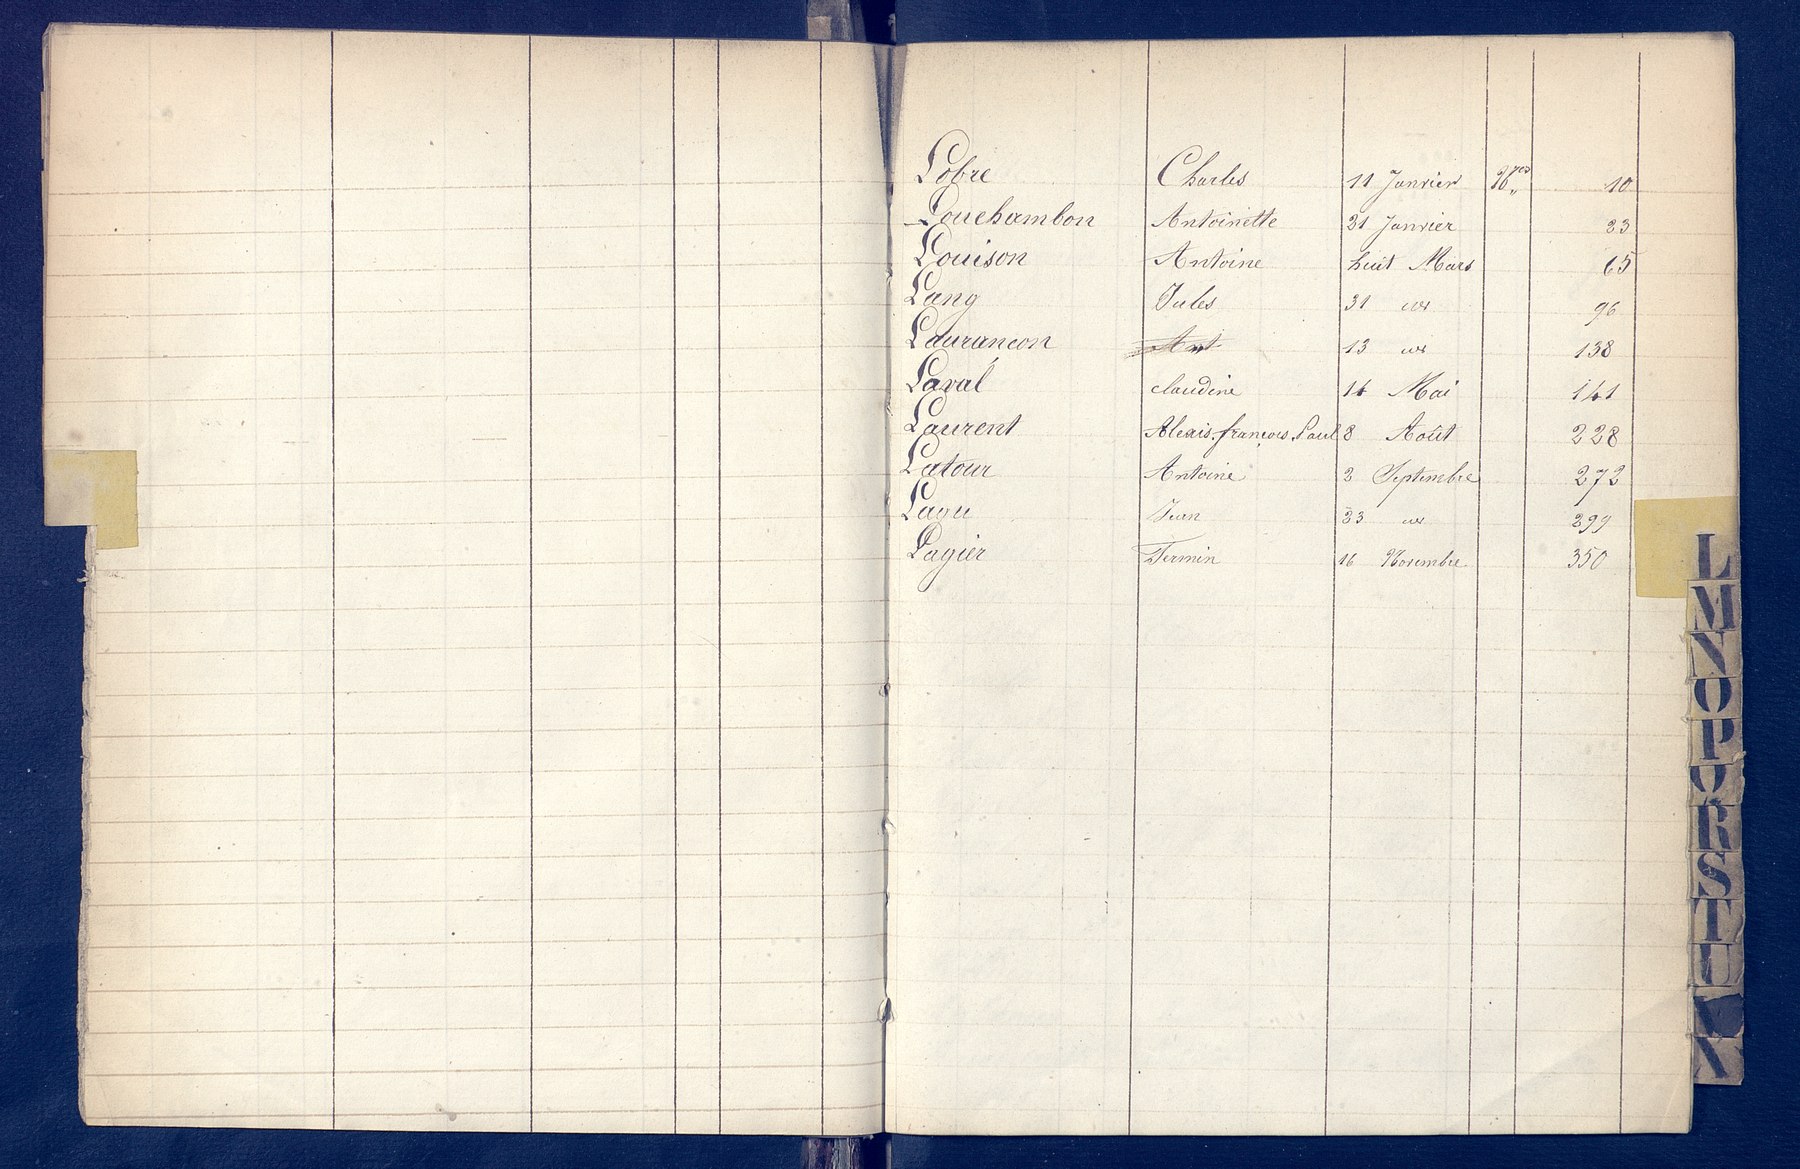 Lobre Charles 11 Janvier 10
Louchambon Antoinette 21 Janvier 23
Louison Antoine huit Mars 65
Lang Jules 31 96
Laurançon Ant 13 138
Laval claudine 14 Mai 141
Laurent Alexis, françois, Paul 8 Août 228
Latour Antoine 2 Septembre 272
Jean 23 299
Lagier Firmin 16 Novembre 350
L
M
N
O
P
Q
R
S
T
U
V
X